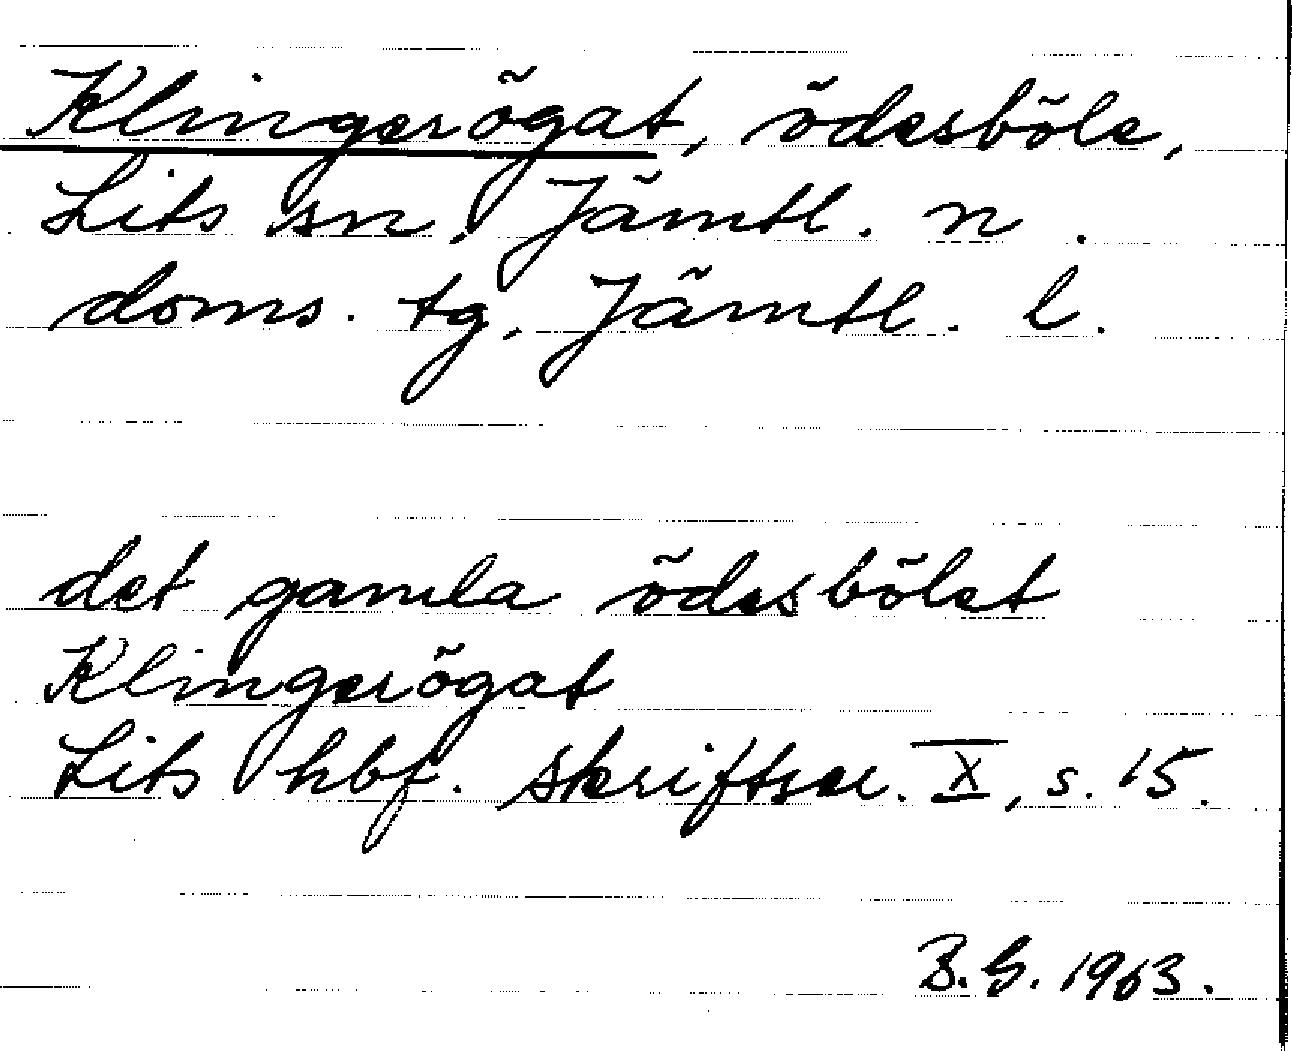 Klingerögat, ödesböle,
Lits sn, Jämtl. n.
doms. tg, Jämtl. l.
det gamla ödesbölet
Klingerögat
Lits hbf. skriftser. X, s. 15.
B. G. 1963.